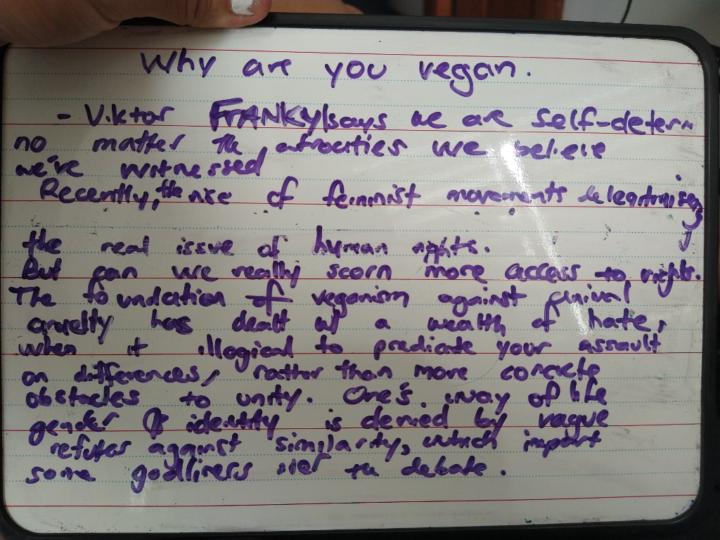 Why are you vegan.
- Viktor FRANKY says we are self-determ
no matter the atrocities we believe
we've witnessed
Recently, the rise of feminist movements delegitimises
the real issue of human rights.
But can we really scorn more access to rights.
The foundation of veganism against animal
cruelty has dealt w/ a wealth of hate,
when it illogical to predicate your assault
on differences, rather than more concrete
obstacles to unity. One's way of life
gender & identity is denied by vague
refutes against similarity, which import
some godliness the debate.